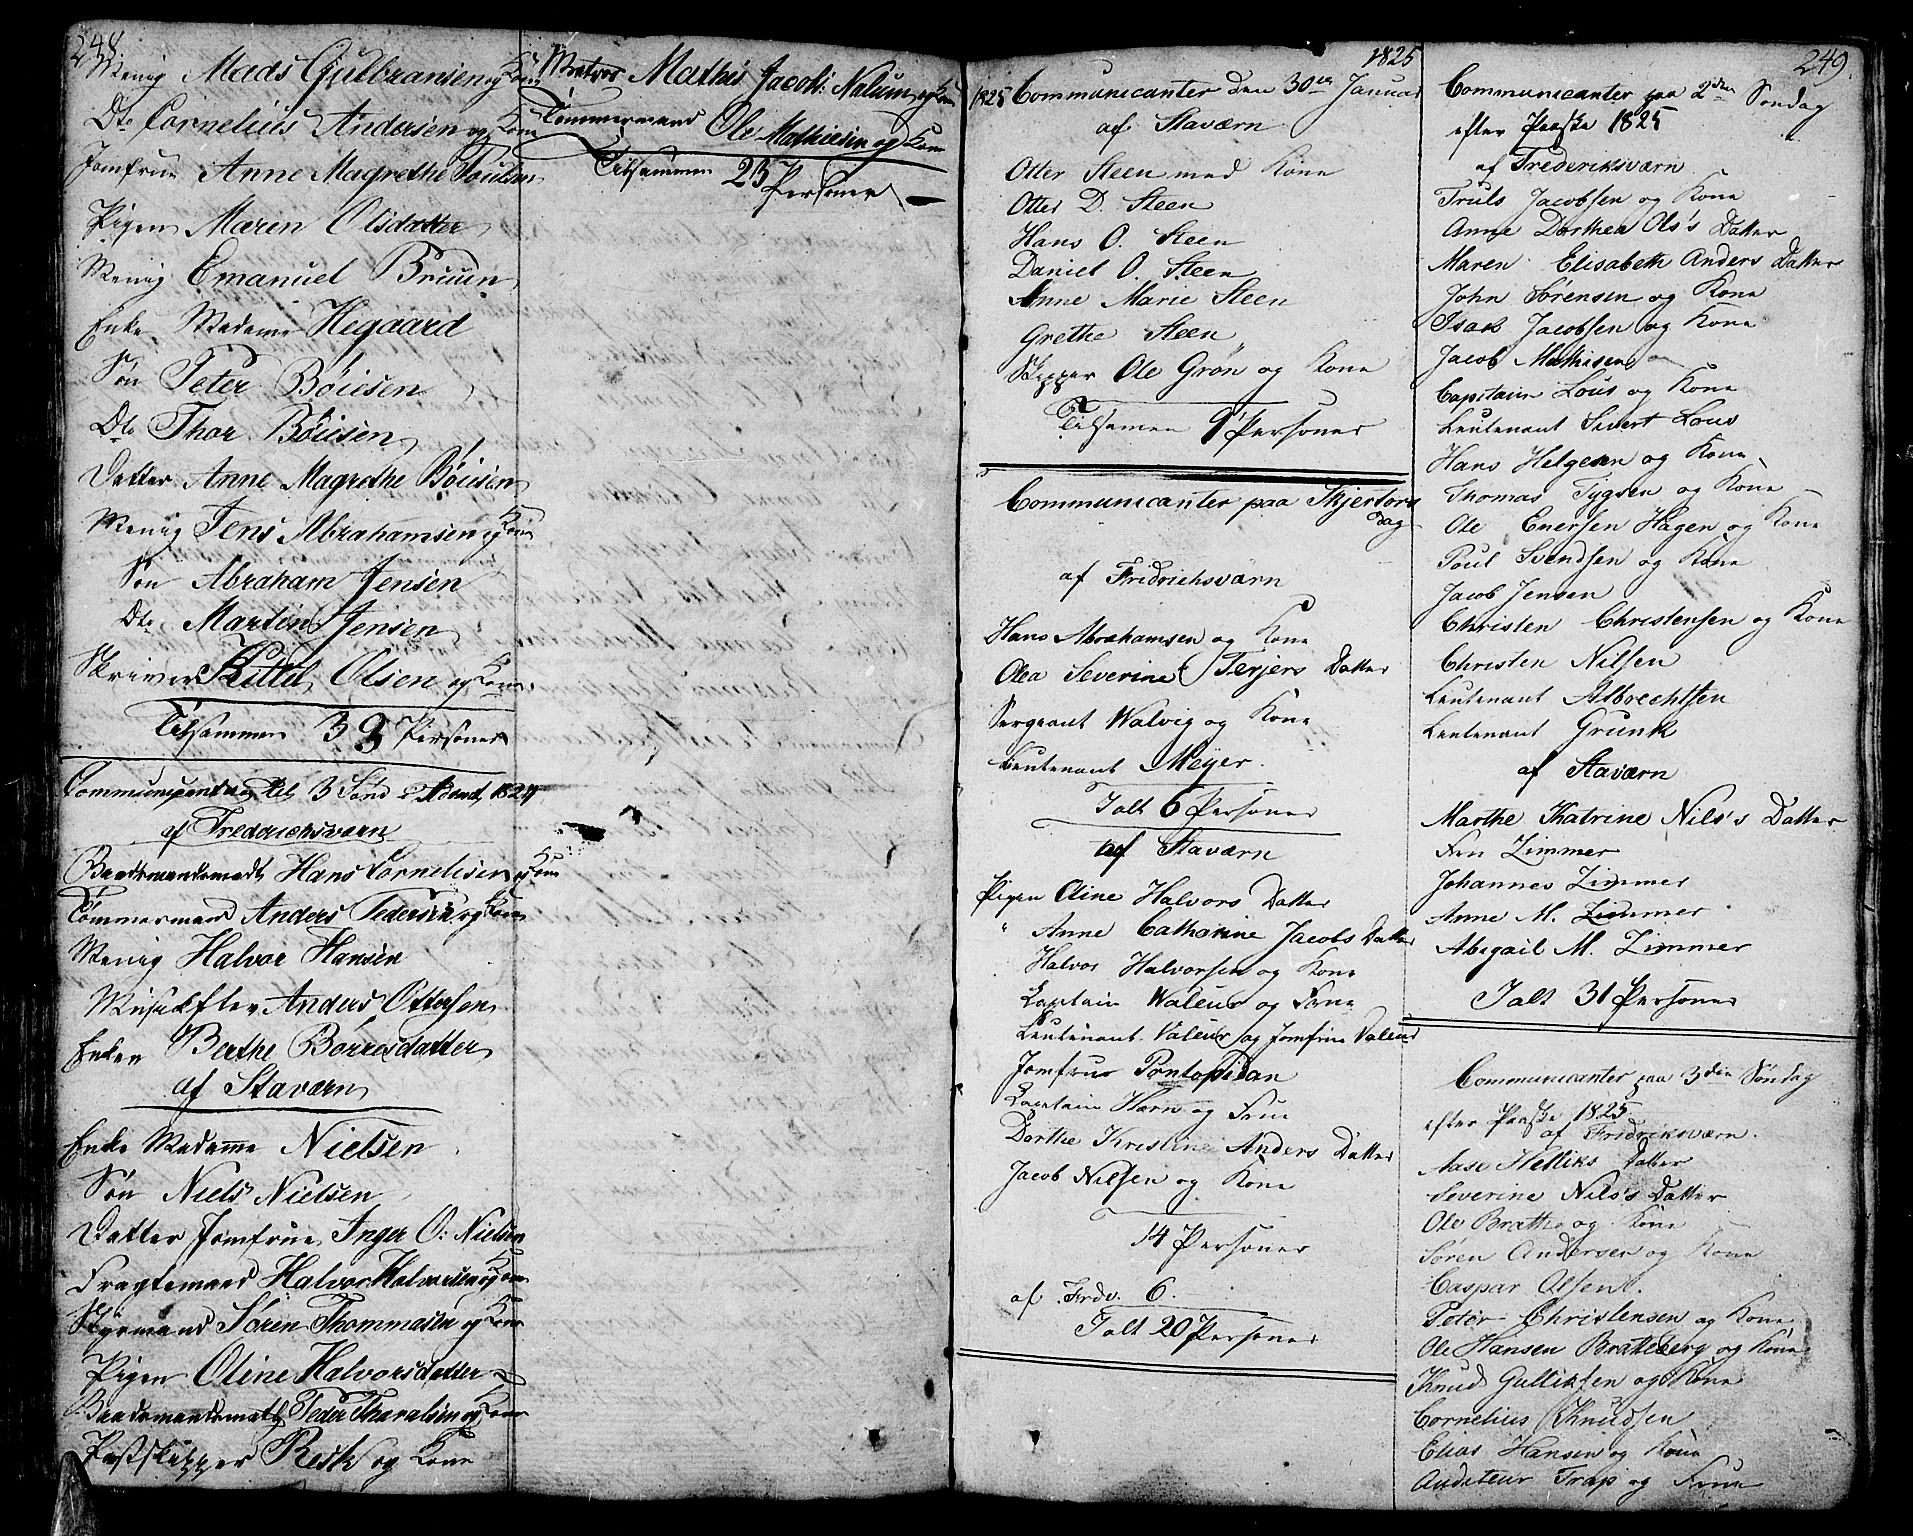 248.
Menig Mads Gulbransen og Kone
Do Cornelius Andersen og Kone
Jomfrue Anne Magrethe Poulsen
Pigen Maren Olsdatter
Menig Emanuel Bruun
Enke Madame Hegaard
Søn Peter Bøiesen
Do Thor Bøiesen
Datter Anne Magrethe Bøiesen
Menig Jens Abrahamsen og Kone
Søn Abraham Jensen
Do Martin Jensen
Skriver Kittel Olsen og Kone
Tilsammen 33 Personer
3 Sønd. i Advent 1824
af Frederichsværn
Baadsmandsmadt Hans Cornelisen og Kone
Tømmermand Anders Pedersen og Kone
Menig Halvor Hansen
Anders Ottersen
Enken Berthe Børresdatter
af Staværn
Enke Madamme Nielsen
Søn Niels Nielsen
Datter Jomfrue Inger O: Nielsen
Fragtemand Halvor Halvorsen og Kone
Styrmand Sören Thommasen og Kone
Pigen Oline Halvorsdatter
Baadsmandsmath Peder Tharalsen og Kone
Postskipper Resk og Kone
Matros Mathis Jacobs: Nalum og Kone
Tømmermand Ole Mathiesen og Kone
Tilsammen 23 Personer
1825
1825 Communicanter den 30te Januar
af Staværn
Otter Steen med Kone
Otter D. Steen
Hans O. Steen
Daniel O. Steen
Anne Marie Steen
Grethe Steen
Skipper Ole Grøn og Kone
Tilsamen 9 Personer
Communicanter paa Skjertors
dag
af Fridrichsværn
Hans Abrahamsen og Kone
Olea Severine Terjers Datter
Sergeant Walvig og Kone
Leutenant Meyer.
Ialt 6 Personer
af Staværn
Pigen Oline Halvors Datter
" Anne Catharine Jacobs Datter
Halvor Halvorsen og Kone
Captain Waleur og Frue
Leutenant Valeur og Jomfrue Valeur
Jomfrue Pontopidan
Captain Horn og Frue
Dorthe Kristine Anders Datter
Jacob Nilsen og Kone
14 Personer
af Frdv. 6.
Ialt 20 Personer
249.
Communicanter paa 2den Søndag
efter Paaske 1825
af Frederiksværn
Truls Jacobsen og Kone
Anne Dorthea Ols's Datter
Maren Elisabeth Anders Datter
John Sørensen og Kone
Isak Jacobsen og Kone
Jacob Mathisen
Capitain Lous og Kone
Leutenant Sivert Lous
Hans Helgesen og Kone
Thomas Tygsen og Kone
Ole Enersen Hagen og Kone
Poul Svendsen og Kone
Jacob Jensen
Christen Christensen og Kone
Christen Nilsen
Leutenant Albrechtsen
Leutenant Grunk
af Staværn
Marthe Katrine Nils's Datter
Frn Zimmer
Johannes Zimmer
Anne M. Zimmer
Abigail M. Zimmer
Ialt 31 Personer
Communicanter paa 3die Søndag
efter Paaske 1825
af Fridriksværn.
Aase Helliks Datter
Severine Nils's Datter
Ole Brathe og Kone
Søren Andersen og Kone
Caspar Olsen
Peter Christensen og Kone
Ole Hansen Brateberg og Kone
Knud Gulliksen og Kone
Cornelius Knudsen
Elias Hansen og Kone
Auditeur Trap og Frue